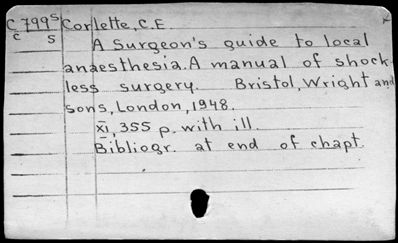 C 799 S Corlette, C.E.
C S A Surgeon's guide to local
anaesthesia. A manual of shock-
less surgery. Bristol, Wright and
sons, London, 1948.
XI, 355 p. with ill.
Bibliogr. at end of chapt.